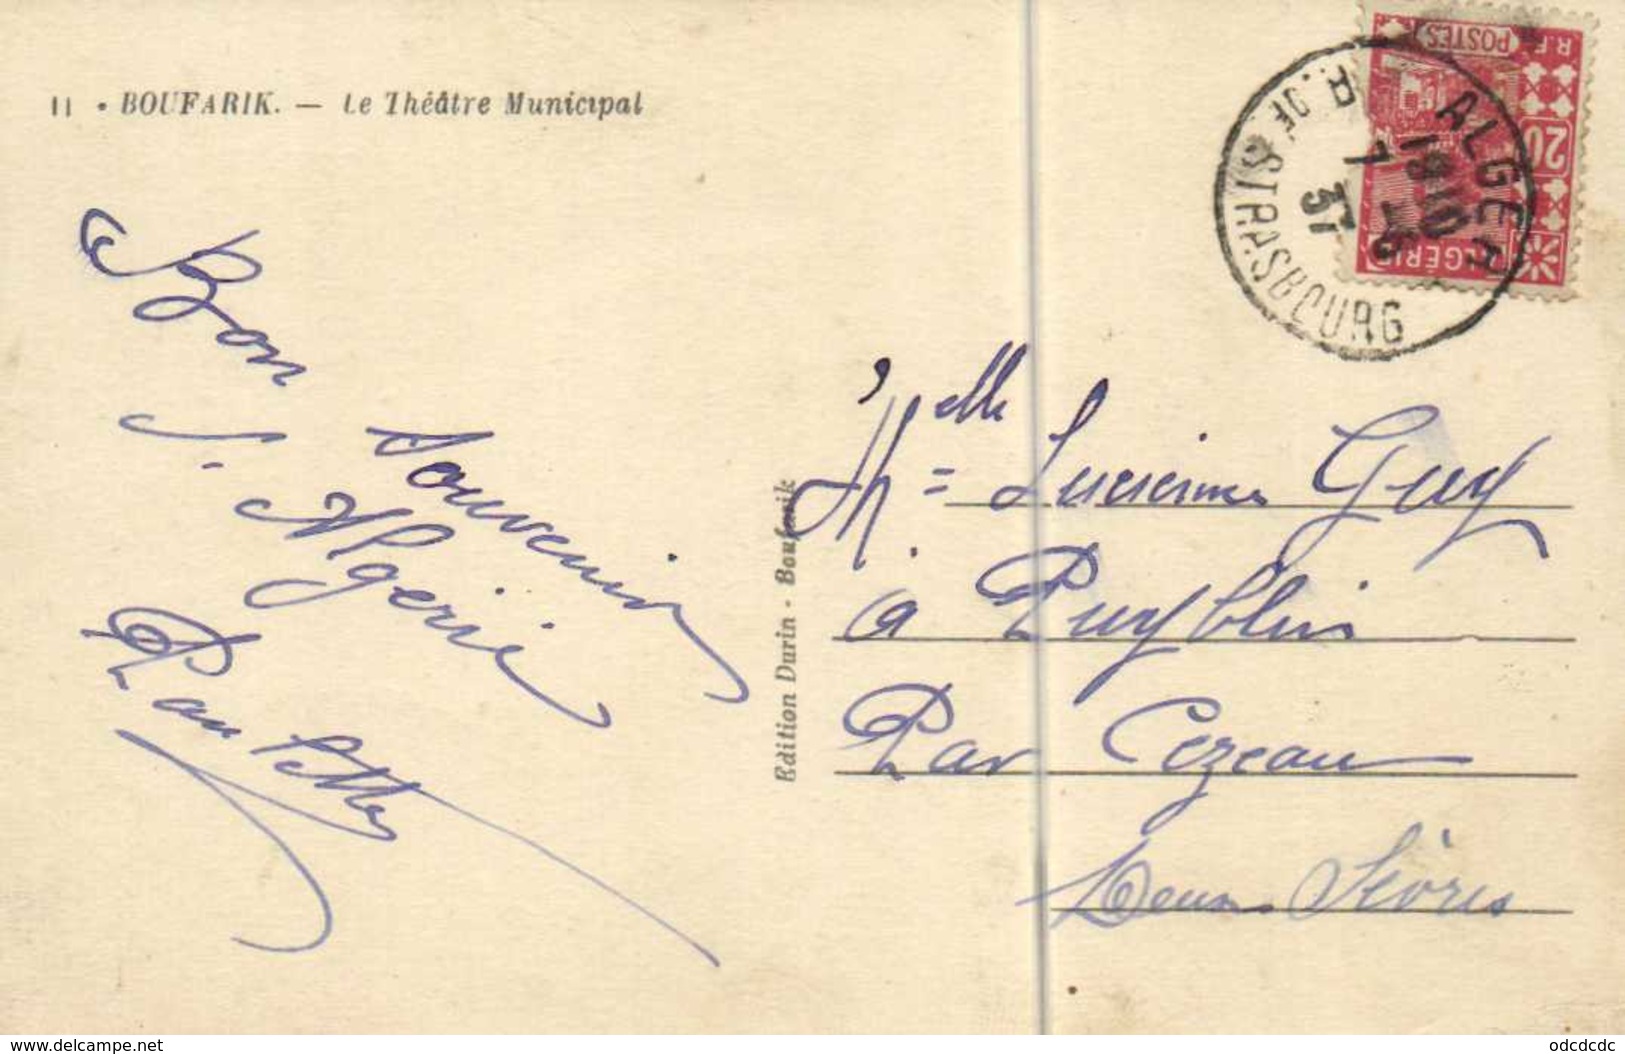 11 • BOUFARIK. — Le Théâtre Municipal
Bon
souvenir
d'Algérie
Edition Durin - Boufarik
POSTES
R.F.
20
ALGÉRIE
ALGER
R. DE STRASBOURG
18 10
7 -6
37
Melle = Lucienne Guy
à Puyblin
Par Cezeau
Deux Sèvres
www.delcampe.net
odcdcdc